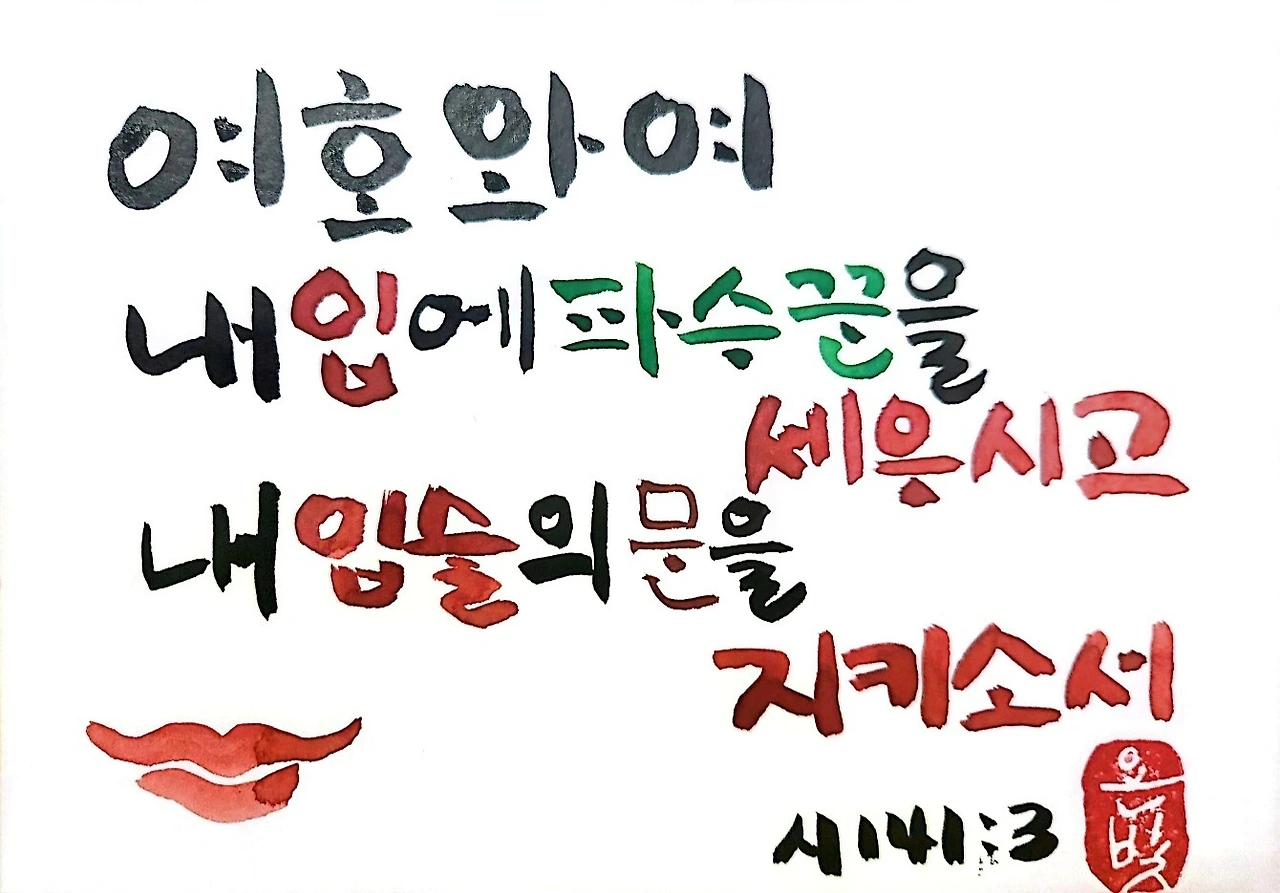 여호와여
내입에파수꾼을
세우시고
내입술의문을
지키소서
시141:3